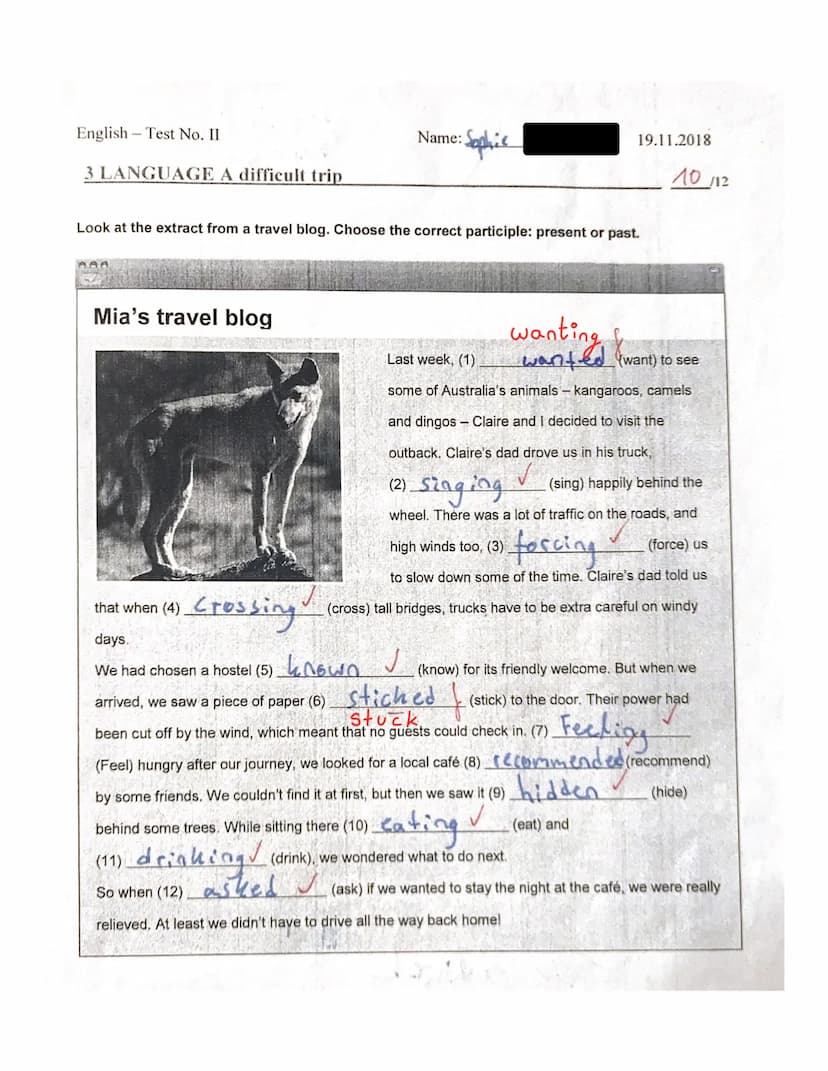 English – Test No. II Name: Sophie 19.11.2018
3 LANGUAGE A difficult trip 10 /12
Look at the extract from a travel blog. Choose the correct participle: present or past.
Mia's travel blog
wanting
Last week, (1) wanted (want) to see
some of Australia's animals – kangaroos, camels
and dingos – Claire and I decided to visit the
outback. Claire's dad drove us in his truck,
(2) singing ✓ (sing) happily behind the
wheel. There was a lot of traffic on the roads, and
high winds too, (3) forcing ✓ (force) us
to slow down some of the time. Claire's dad told us
that when (4) Crossing ✓ (cross) tall bridges, trucks have to be extra careful on windy
days.
We had chosen a hostel (5) known ✓ (know) for its friendly welcome. But when we
arrived, we saw a piece of paper (6) sticked (stick) to the door. Their power had
stuck
been cut off by the wind, which meant that no guests could check in. (7) Feeling ✓
(Feel) hungry after our journey, we looked for a local café (8) recommended ✓ (recommend)
by some friends. We couldn't find it at first, but then we saw it (9) hidden ✓ (hide)
behind some trees. While sitting there (10) eating ✓ (eat) and
(11) drinking ✓ (drink), we wondered what to do next.
So when (12) asked ✓ (ask) if we wanted to stay the night at the café, we were really
relieved. At least we didn't have to drive all the way back home!